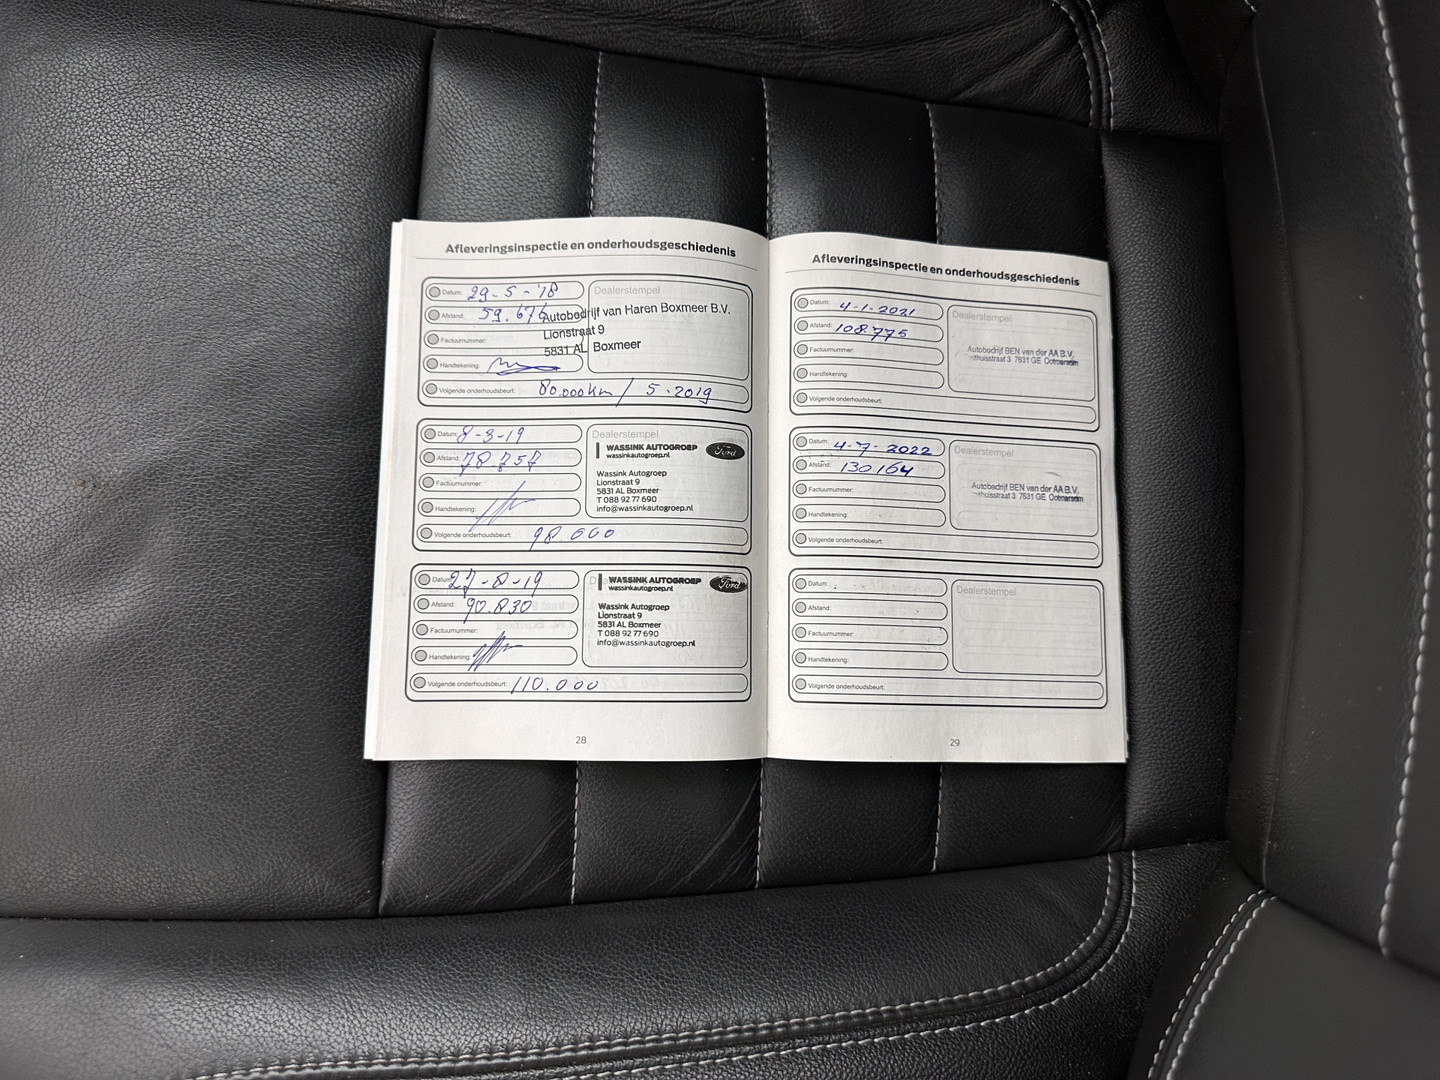 Afleveringsinspectie en onderhoudsgeschiedenis
Datum: 29-5-'18
Afstand: 59.676
Factuurnummer:
Handtekening:
Dealerstempel
Autobedrijf van Haren Boxmeer B.V.
Lionstraat 9
5831 AL Boxmeer
Volgende onderhoudsbeurt: 80.000km / 5-2019
Datum: 8-3-19
Afstand: 78.757
Factuurnummer:
Handtekening:
Dealerstempel
WASSINK AUTOGROEP
wassinkautogroep.nl
Ford
Wassink Autogroep
Lionstraat 9
5831 AL Boxmeer
T 088 92 77 690
info@wassinkautogroep.nl
Volgende onderhoudsbeurt: 98.000
Datum: 27-8-19
Afstand: 90.830
Factuurnummer:
Handtekening:
WASSINK AUTOGROEP
wassinkautogroep.nl
Ford
Wassink Autogroep
Lionstraat 9
5831 AL Boxmeer
T 088 92 77 690
info@wassinkautogroep.nl
Volgende onderhoudsbeurt: 110.000
28
Afleveringsinspectie en onderhoudsgeschiedenis
Datum: 4-1-2021
Afstand: 108.775
Factuurnummer:
Handtekening:
Dealerstempel
Autobedrijf BEN van der AA B.V.
3 7631 GE Ootmarsum
Volgende onderhoudsbeurt:
Datum: 4-7-2022
Afstand: 130.164
Factuurnummer:
Handtekening:
Dealerstempel
Autobedrijf BEN van der AA B.V.
3 7631 GE Ootmarsum
Volgende onderhoudsbeurt:
Datum:
Afstand:
Factuurnummer:
Handtekening:
Dealerstempel
Volgende onderhoudsbeurt:
29